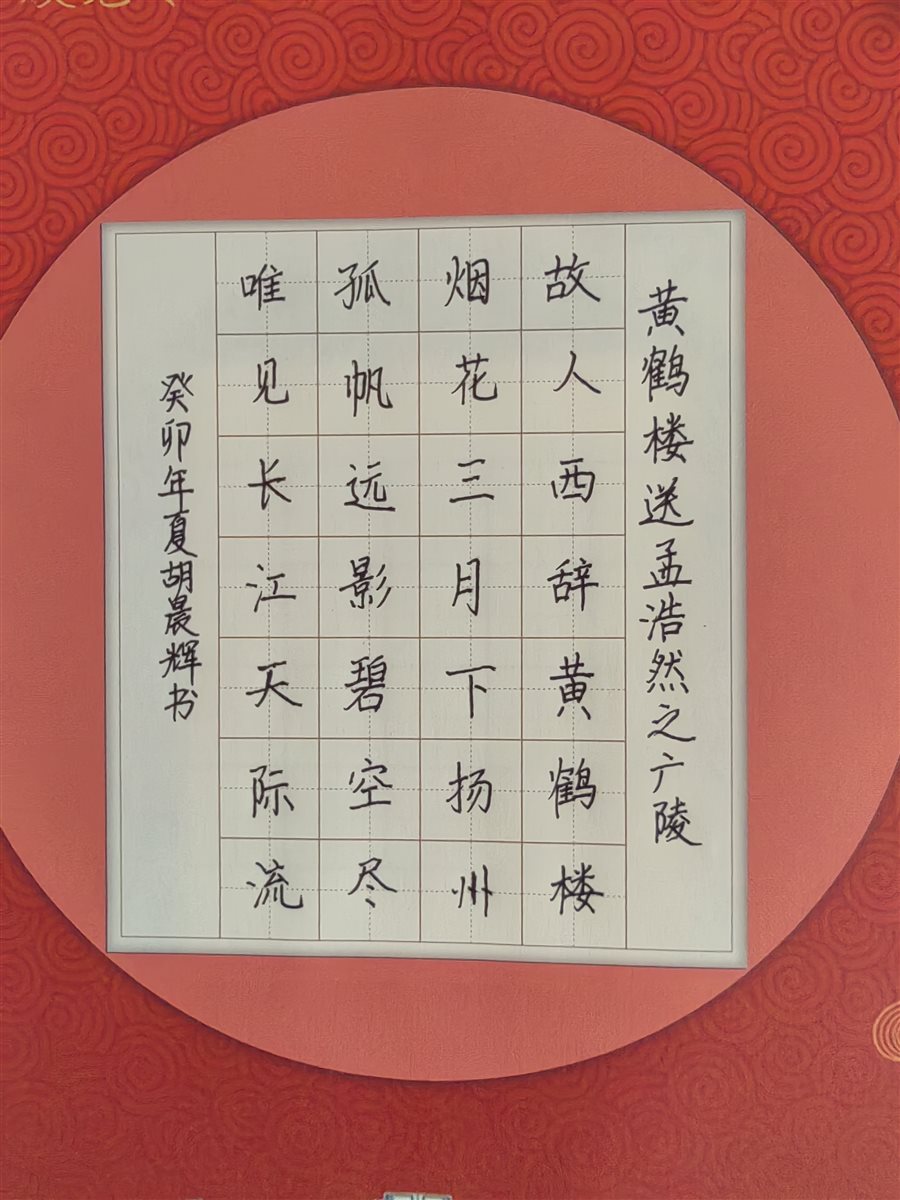 黄鹤楼送孟浩然之广陵
故人西辞黄鹤楼
烟花三月下扬州
孤帆远影碧空尽
唯见长江天际流
癸卯年夏胡晨辉书